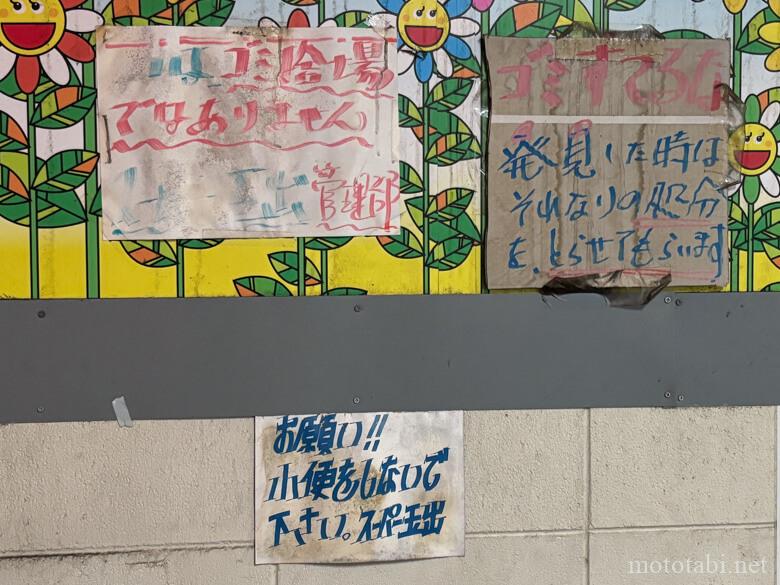 はゴミ捨場
ではありません
管理部
ゴミすてるな
発見した時は
それなりの処分
を、とらせてもらいます
お願い!!
小便をしないで
下さい。スーパー玉出
mototabi.net